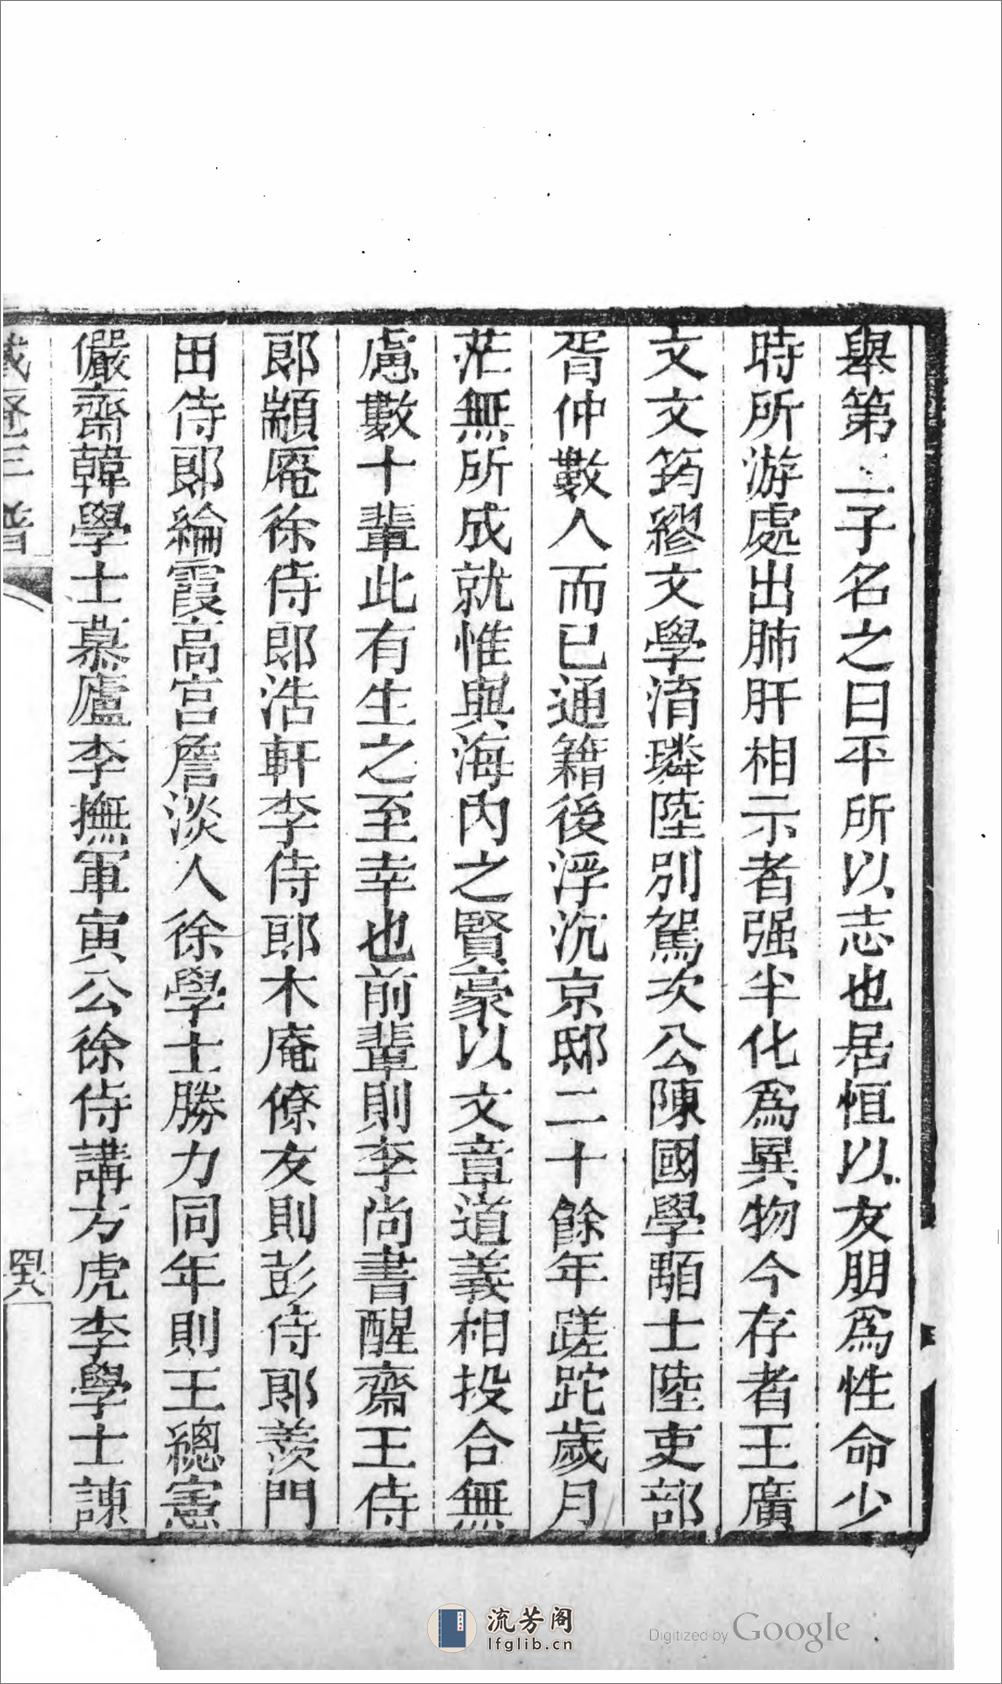 舉第二子名之曰平所以志也居恒以友朋爲性命少
時所游處出肺肝相示者强半化爲異物今存者王廣
文文筠繆文學淯璘陸別駕次公陳國學騆士陸吏部
胥仲數人而已通籍後浮沉京邸二十餘年蹉跎歲月
茫無所成就惟與海內之賢豪以文章道義相投合無
慮數十輩此有生之至幸也前輩則李尚書醒齋王侍
郎顓庵徐侍郎浩軒李侍郎木庵僚友則彭侍郎羨門
田侍郎綸霞高宮詹淡人徐學士勝力同年則王總憲
儼齋韓學士慕廬李撫軍寅公徐侍講方虎李學士諫
三
四六
流芳阁
lfglib.cn
Digitized by Google